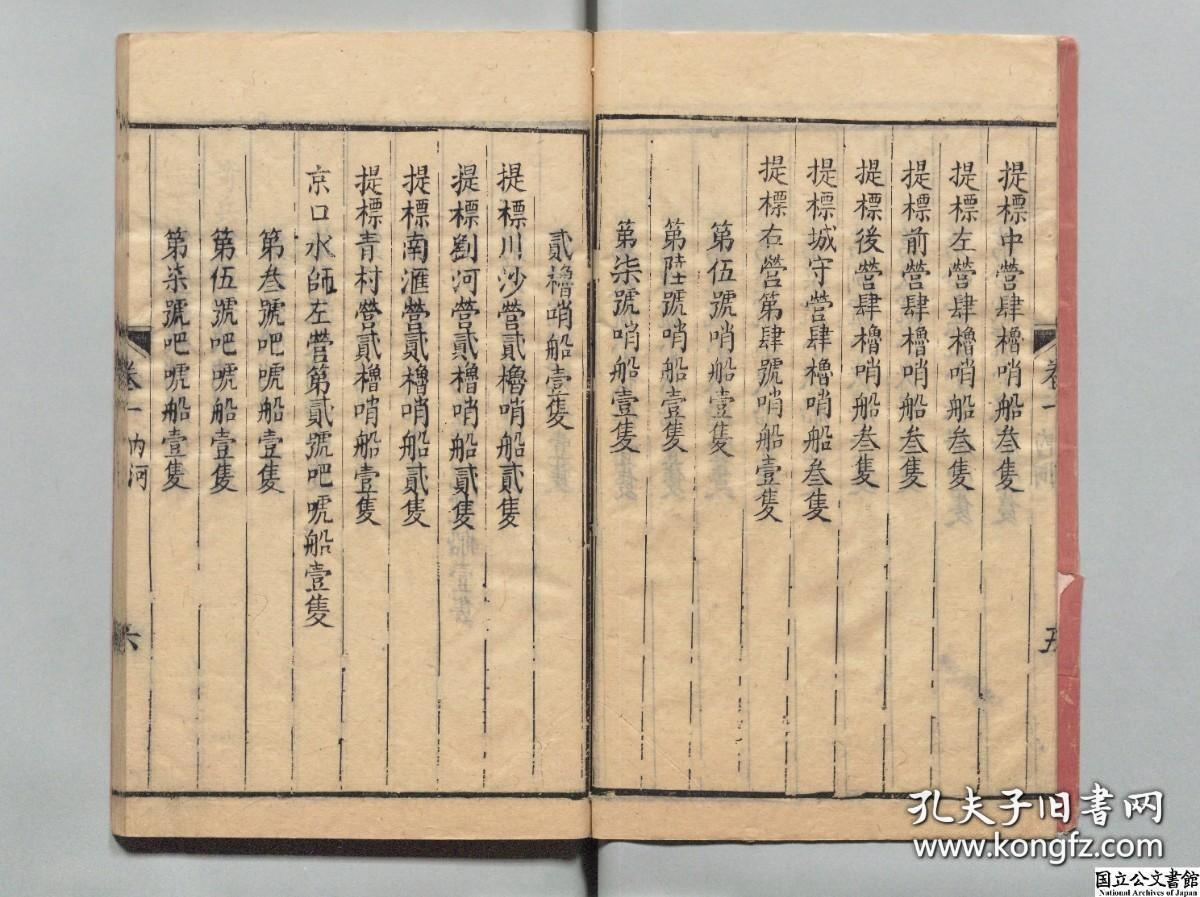 提標中營肆櫓哨船叁隻
提標左營肆櫓哨船叁隻
提標前營肆櫓哨船叁隻
提標後營肆櫓哨船叁隻
提標城守營肆櫓哨船叁隻
提標右營第肆號哨船壹隻
第伍號哨船壹隻
第陸號哨船壹隻
第柒號哨船壹隻
貳櫓哨船壹隻
提標川沙營貳櫓哨船貳隻
提標劉河營貳櫓哨船貳隻
提標南滙營貳櫓哨船貳隻
提標青村營貳櫓哨船壹隻
京口水師左營第貳號吧唬船壹隻
第叁號吧唬船壹隻
第伍號吧唬船壹隻
第柒號吧唬船壹隻
卷一 內河
六
孔夫子旧书网
www.kongfz.com
国立公文書館
National Archives of Japan